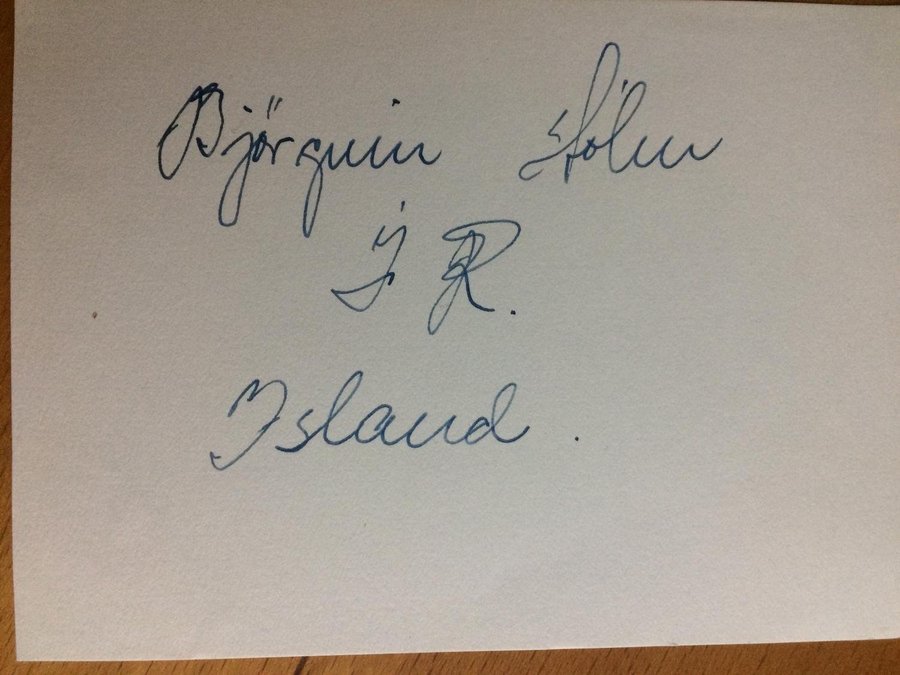 Björgvin Hólm
Í R.
Island.